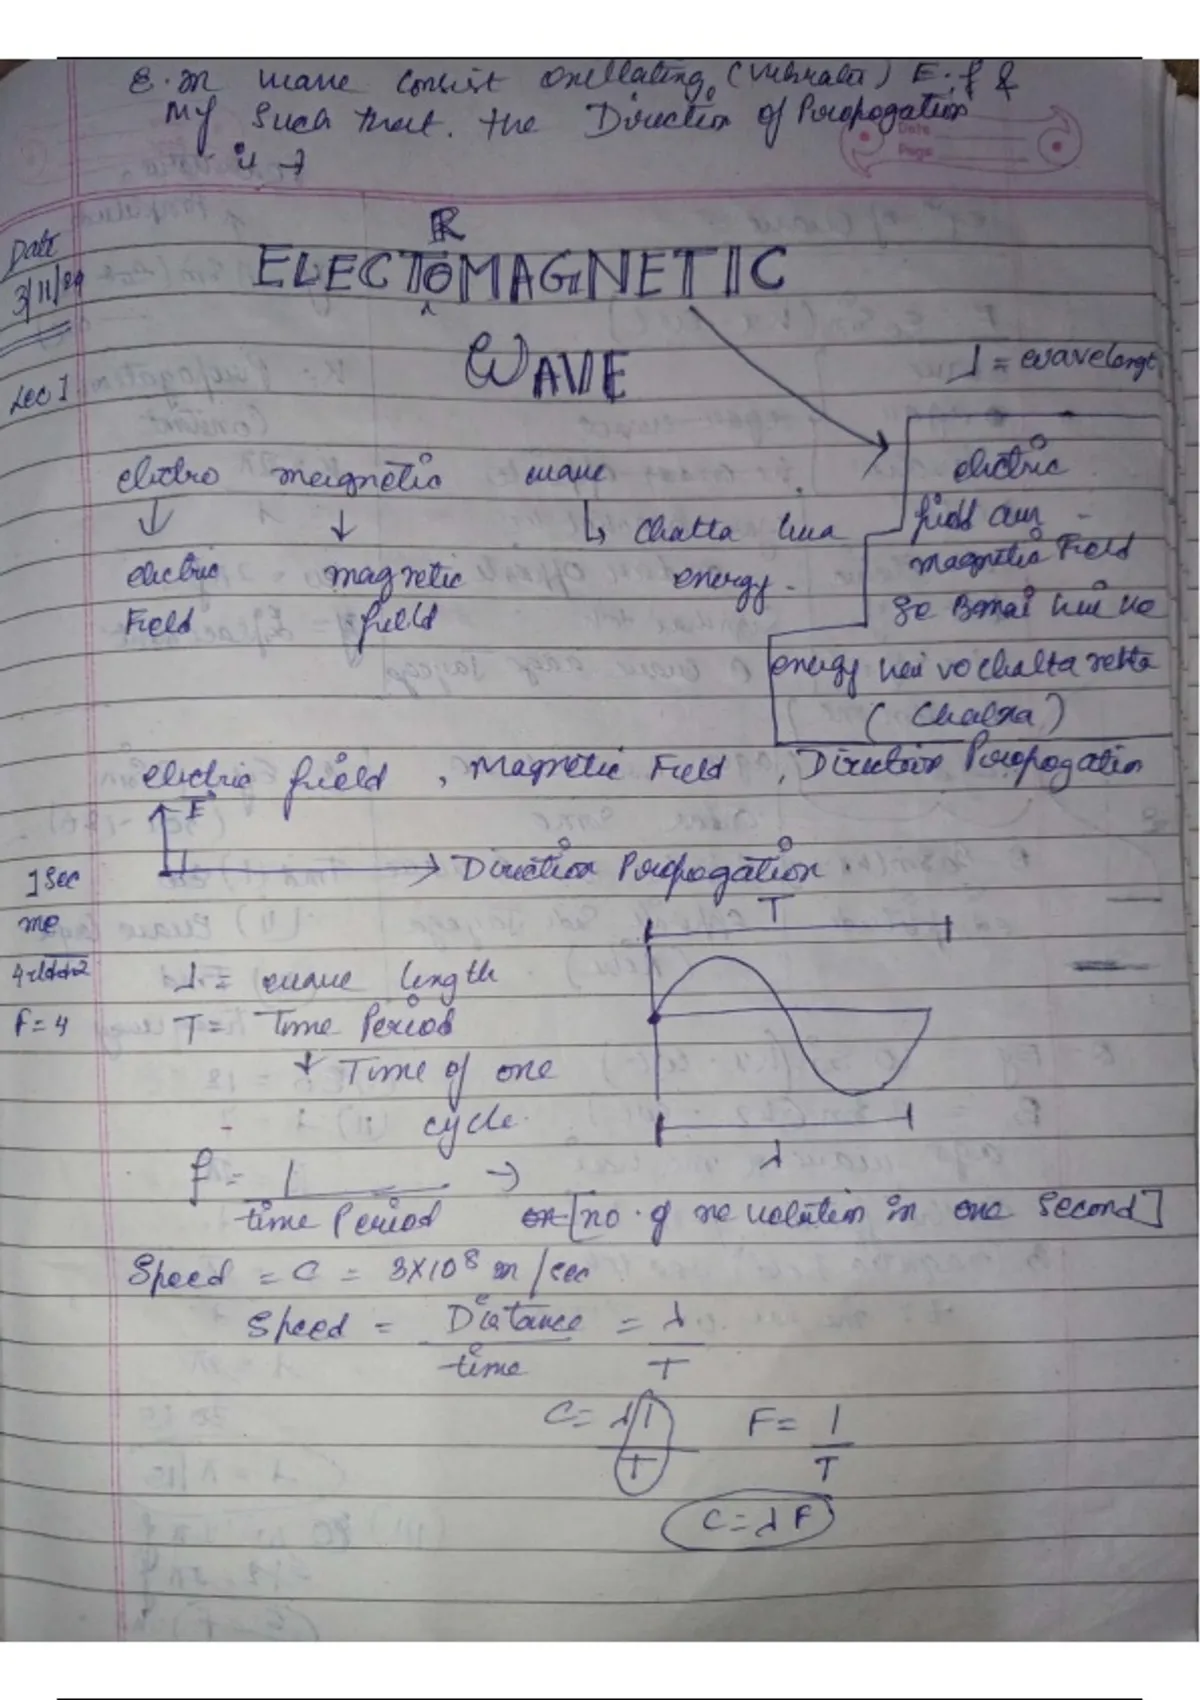 E.m wave consist oscillating (vibrates) E.f &
Mf such that. the Direction of Poropogation
is →
Date
Page
Date
3/11/24
R
ELECTOMAGNETIC
WAVE
Lec 1
λ = wavelengt
electro magnetic wave
↓ ↓ ↳ Chalta hua
electric magnetic energy.
Field field
electric
field aur
magnetic Field
se Bonai hui vo
energy hai vo chalta rehta
(Chalna)
electric field, Magnetic Field, Direction Poropogation
E
→ Direction Poropogation.
1 sec
me
F = 4
T
λ = wave length
T = Time Period
↓ Time of one
cycle.
λ
f = 1 →
time Period or [no. of revolution in one second]
Speed = C = 3×10⁸ m/sec
Speed = Distance = λ
time T
C = λ 1 F = 1
T T
C = λ F